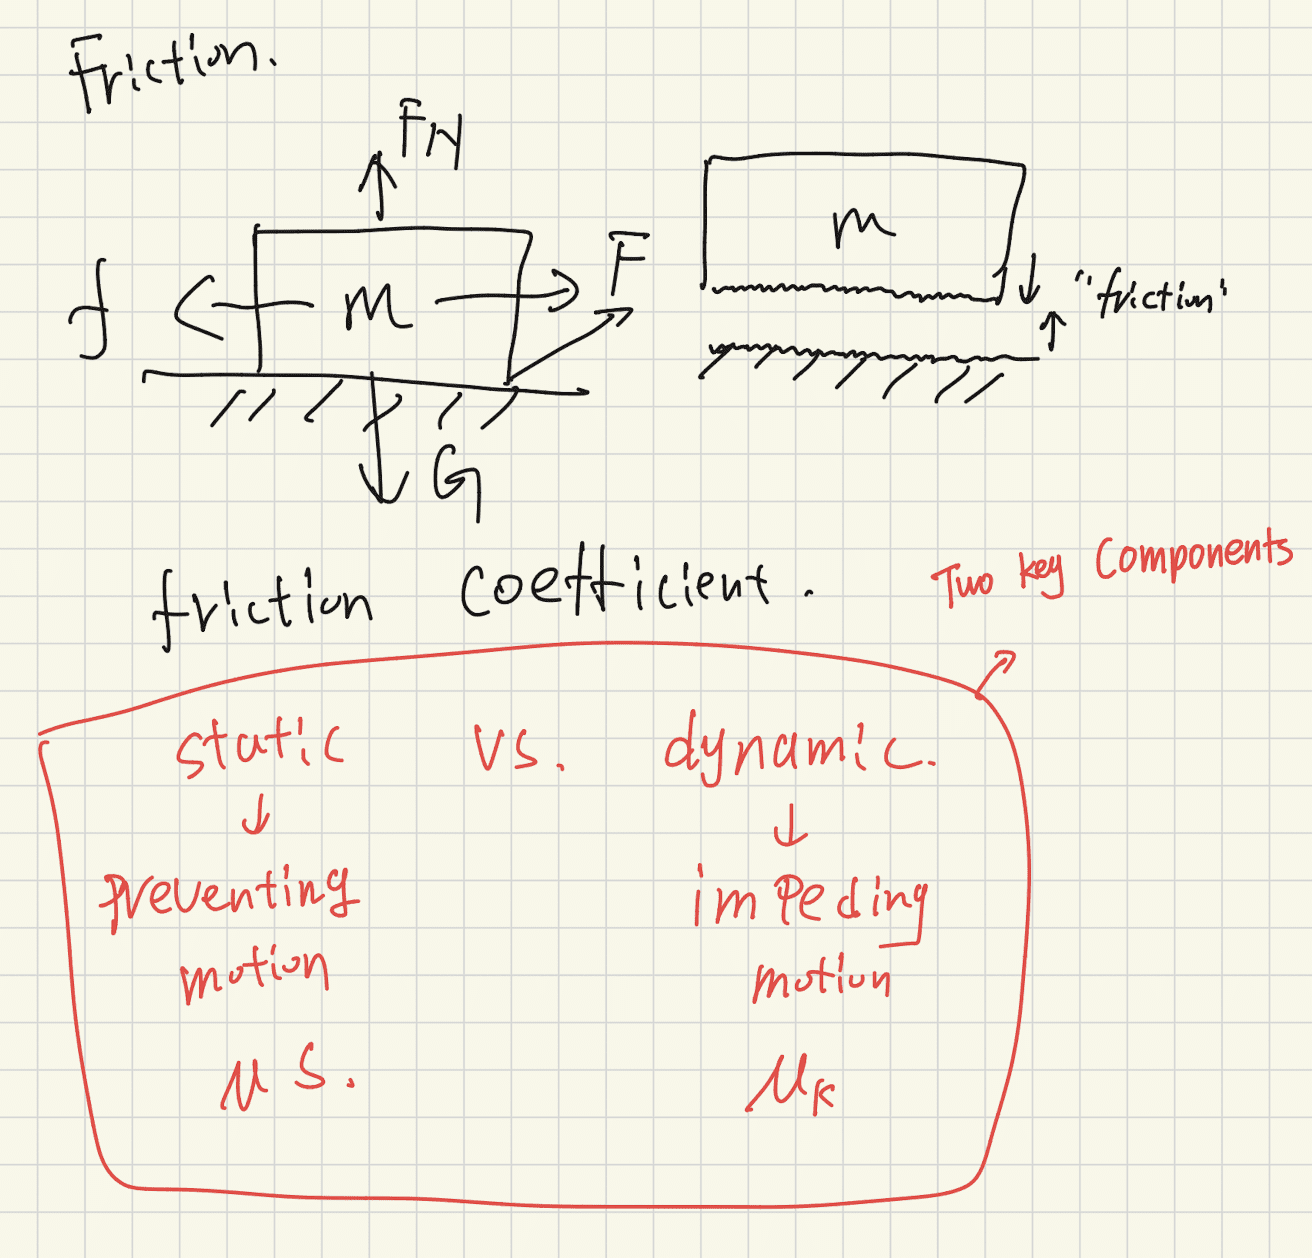 Friction.
FN
f
m
F
G
m
"friction"
friction coefficient.
Two key Components
static vs. dynamic.
preventing impeding
motion motion
μs. μk